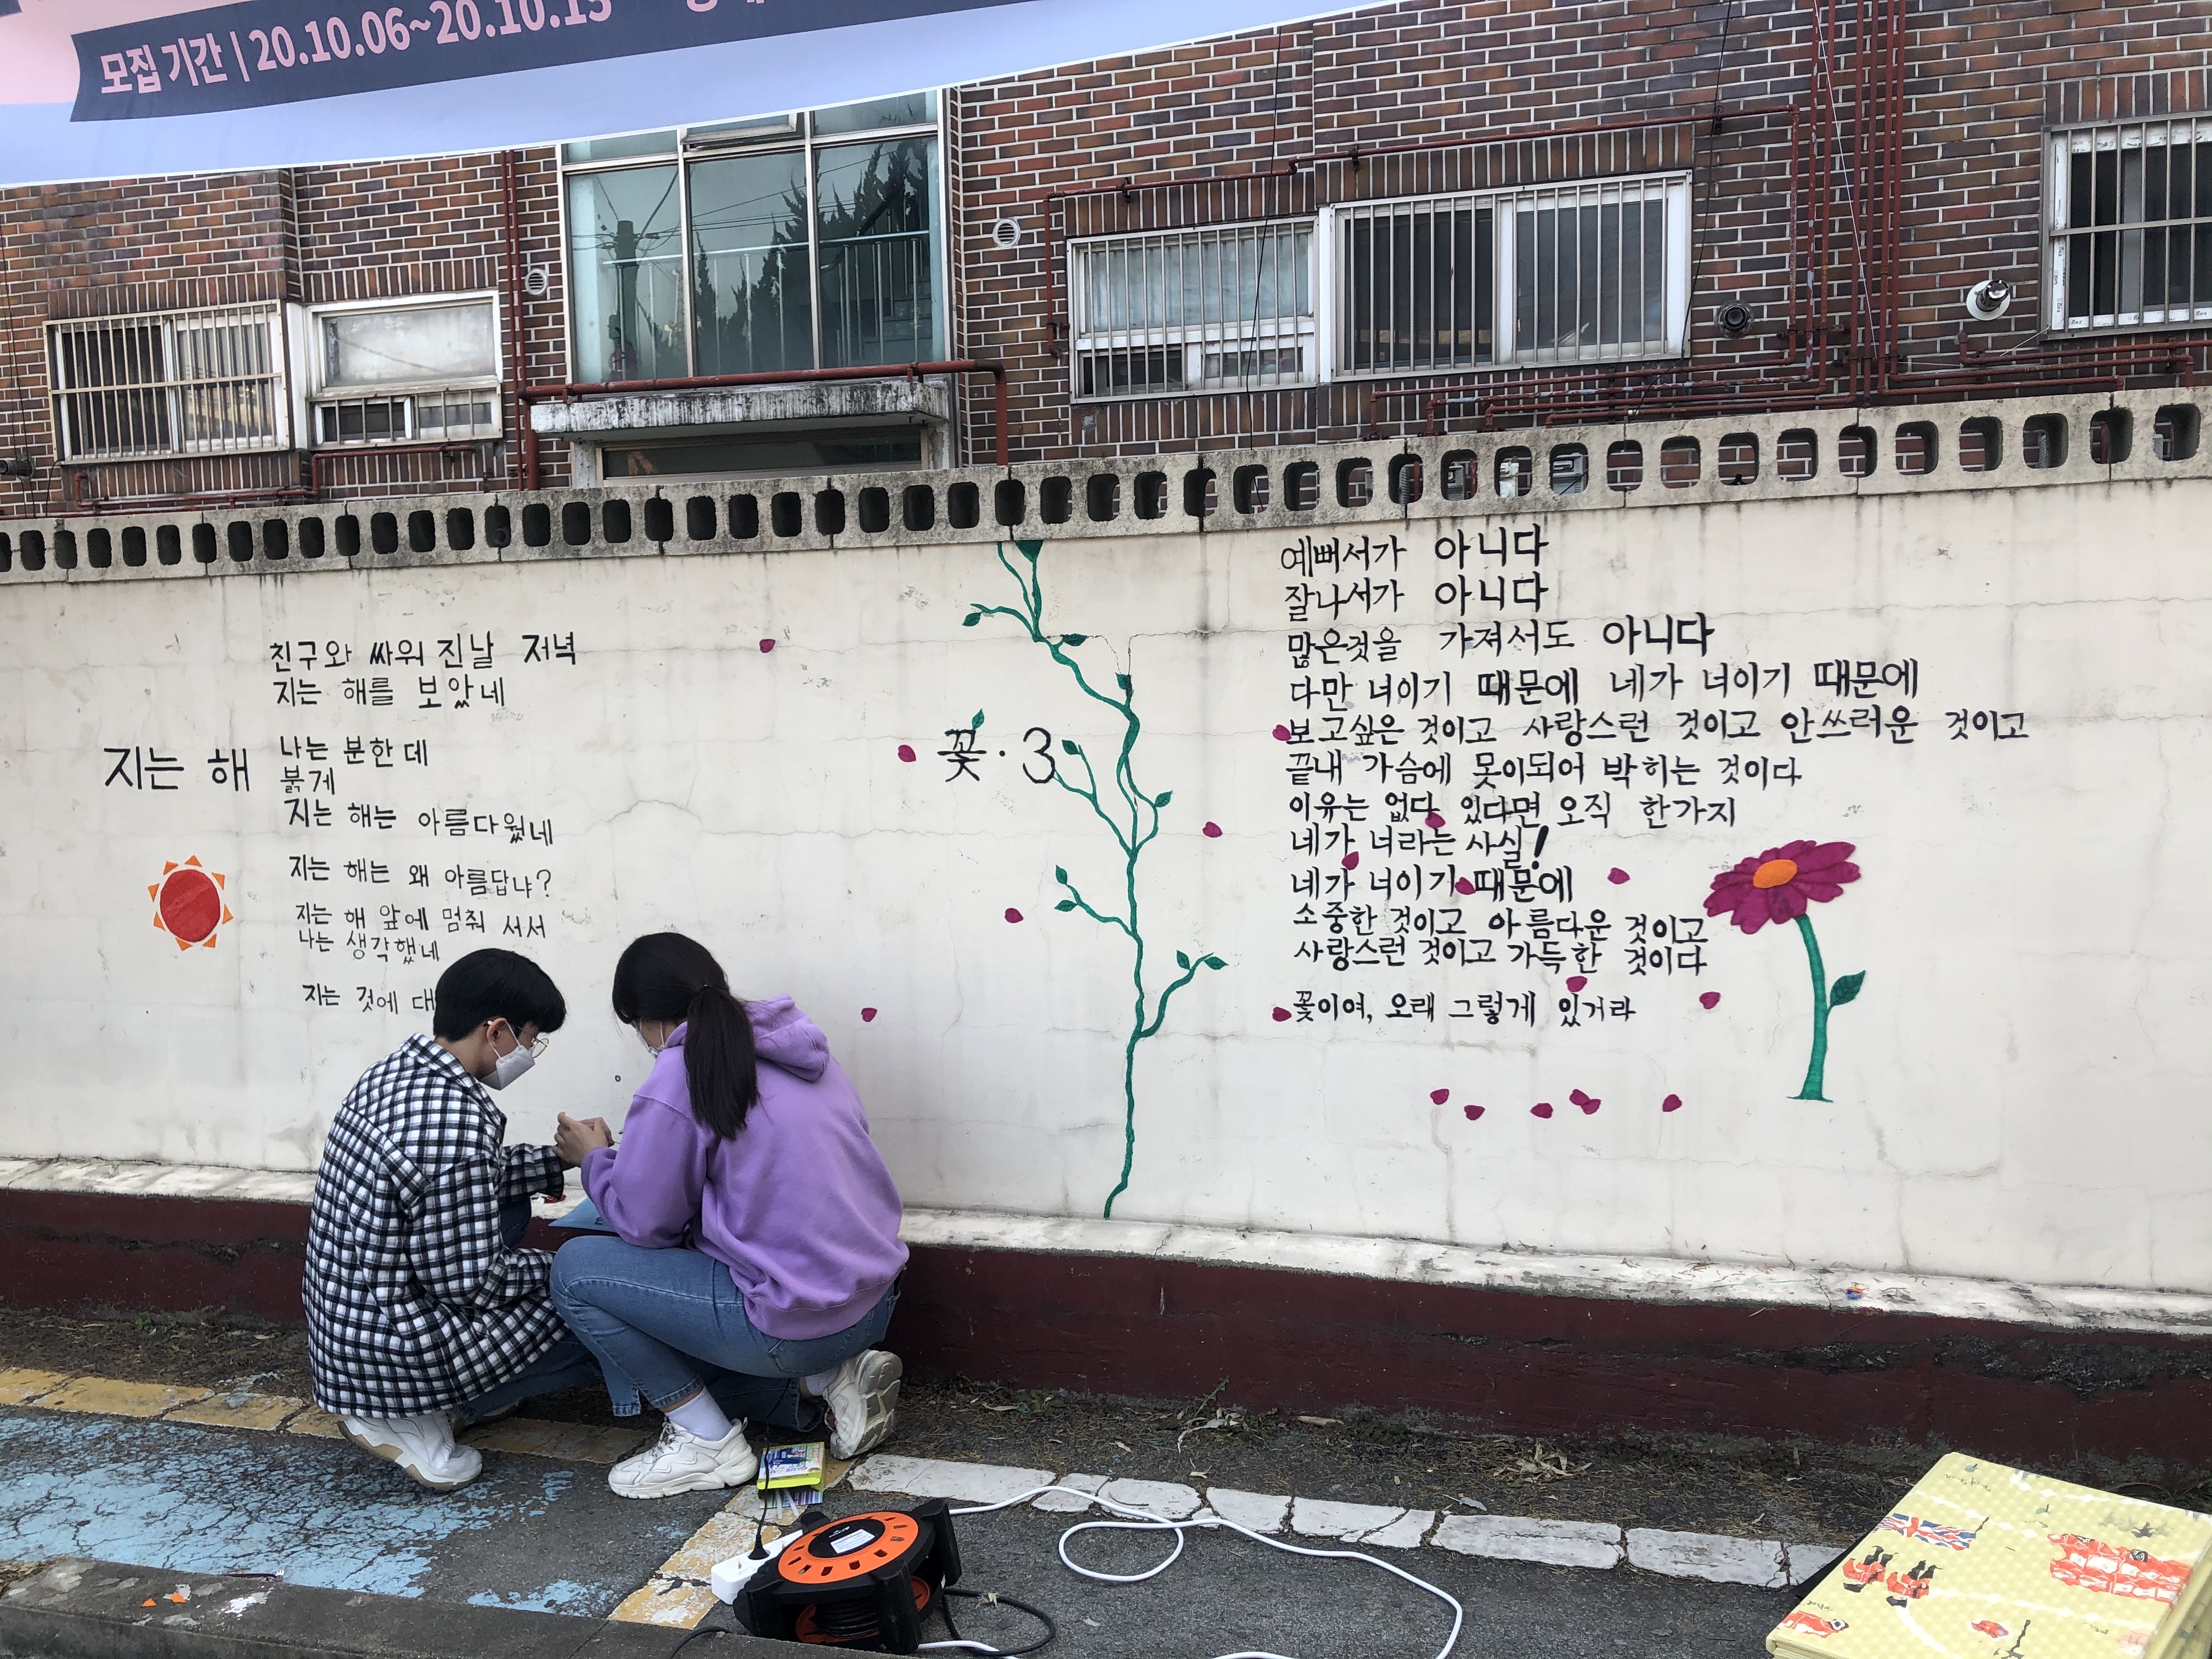 모집 기간 | 20.10.06~20.10.15
지는 해
친구와 싸워 진날 저녁
지는 해를 보았네
나는 분한데
붉게
지는 해는 아름다웠네
지는 해는 왜 아름답냐?
지는 해 앞에 멈춰 서서
나는 생각했네
지는 것에 대
꽃·3
예뻐서가 아니다
잘나서가 아니다
많은것을 가져서도 아니다
다만 너이기 때문에 네가 너이기 때문에
보고싶은 것이고 사랑스런 것이고 안쓰러운 것이고
끝내 가슴에 못이되어 박히는 것이다
이유는 없다 있다면 오직 한가지
네가 너라는 사실!
네가 너이기 때문에
소중한 것이고 아름다운 것이고
사랑스런 것이고 가득한 것이다
꽃이여, 오래 그렇게 있거라